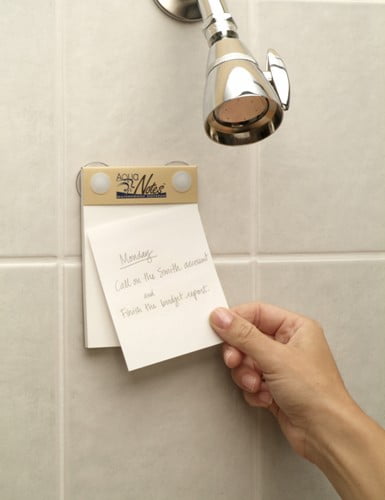 AQUA
Notes
Monday
Call on the Smith account
and
Finish the budget report.